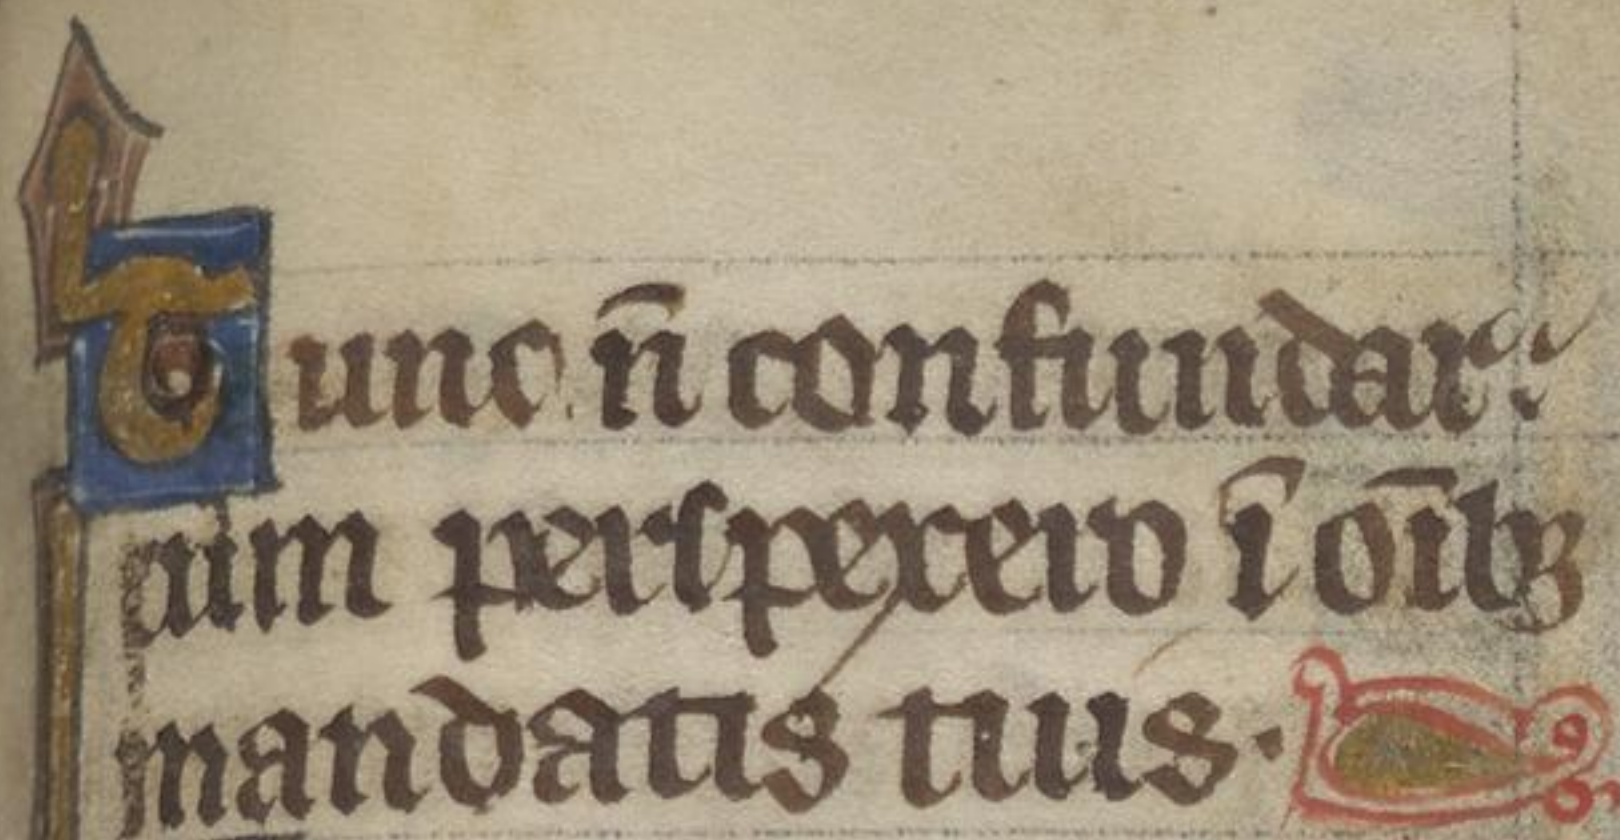 Tunc n̄ confundar:
cum perspexero ī oīb₃
mandatis tuis·